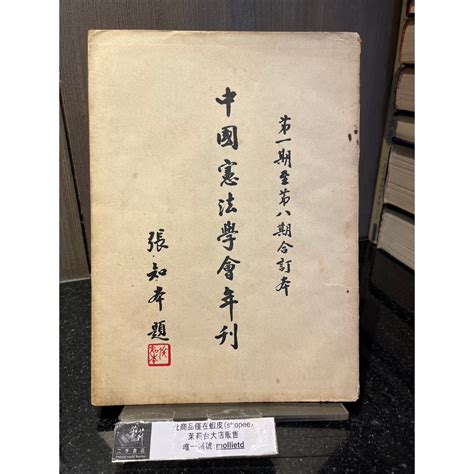 第一期至第八期合訂本
中國憲法學會年刊
張知本題
此商品僅在蝦皮(shopee)
茉莉台大店販售
唯一帳號:mollietd